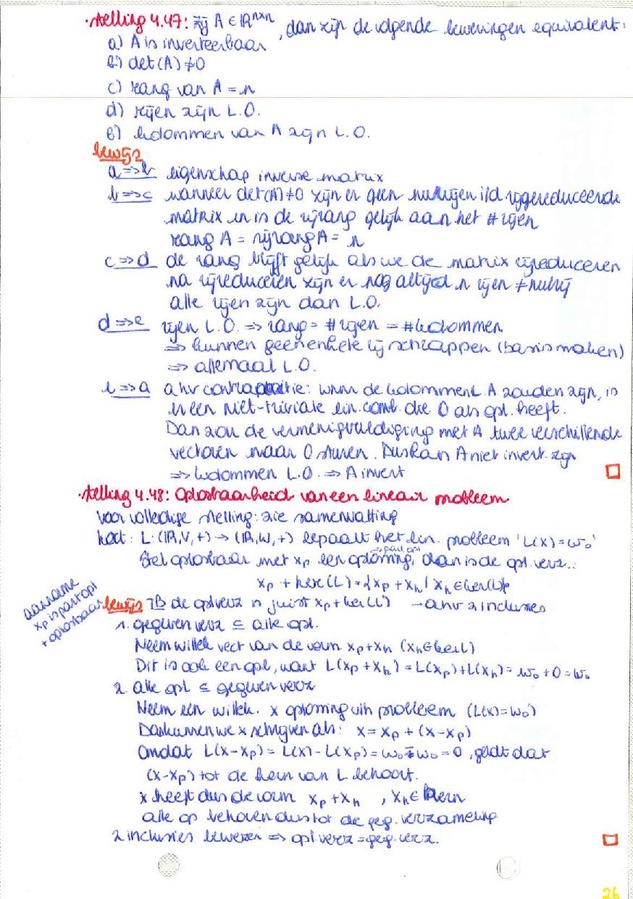 ·stelling 4.47: zij A ∈ ℝⁿˣⁿ, dan zijn de volgende beweringen equivalent:
a) A is inverteerbaar
b) det(A) ≠ 0
c) rang van A = n
d) rijen zijn L.O.
e) kolommen van A zijn L.O.
bewijs
a => b eigenschap inverse matrix
b => c wanneer det(A) ≠ 0 zijn er geen nulrijen i/d rijgereduceerde
matrix en is de rijrang gelijk aan het # rijen
rang A = rijrang A = n
c => d de rang blijft gelijk als we de matrix rijreduceren
na rijreduceren zijn er nog altijd n rijen ≠ nulrij
alle rijen zijn dan L.O.
d => e rijen L.O. => rang = # rijen = # kolommen
=> kunnen geen enkele rij schrappen (basis maken)
=> allemaal L.O.
e => a ahv contrapositie: wnn de kolommen L.A zouden zijn, is
er een niet-triviale lin. comb. die 0 als opl. heeft.
Dan zou de vermenigvuldiging met A twee verschillende
vectoren naar 0 sturen. Dus kan A niet invert. zijn
=> kolommen L.O. => A invert
·stelling 4.48: Oplosbaarheid van een lineair probleem
voor volledige stelling: zie samenvatting
kort: L: (ℝ,V,+) → (ℝ,W,+) bepaalt het lin. probleem 'L(x) = w₀'
Stel oplosbaar met xₚ een oplossing, dan is de opl. verz.:
xₚ + ker(L) = {xₚ + xₕ | xₕ ∈ ker(L)}
aanname
xₚ is part opl
+ oplosbaar
bewijs TB de opl verz is juist xₚ + ker(L) → ahv 2 inclusies
1. gegeven verz ⊆ alle opl.
Neem willek. vect van de vorm xₚ + xₕ (xₕ ∈ ker L)
Dit is ook een opl, want L(xₚ + xₕ) = L(xₚ) + L(xₕ) = w₀ + 0 = w₀
2. alle opl ⊆ gegeven verz
Neem een willek. x oplossing v/h probleem (L(x) = w₀)
Dan kunnen we x schrijven als: x = xₚ + (x - xₚ)
Omdat L(x - xₚ) = L(x) - L(xₚ) = w₀ - w₀ = 0, geldt dat
(x - xₚ) tot de kern van L behoort.
x heeft dus de vorm xₚ + xₕ , xₕ ∈ kern
alle op behoren dus tot de geg. verzameling
2 inclusies bewezen => opl verz = geg. verz.
26